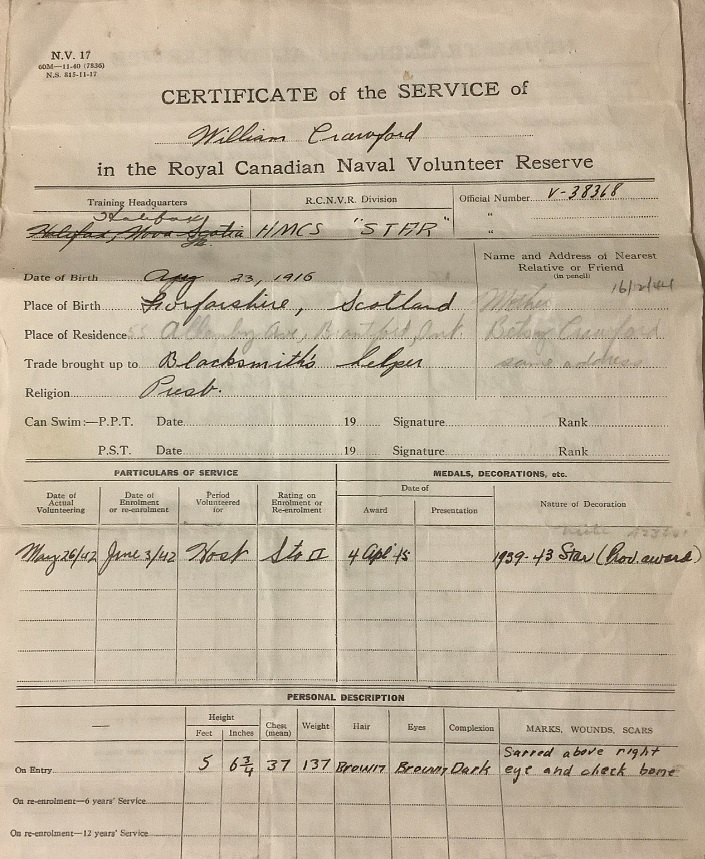 N.V. 17
60M—11-40 (7836)
N.S. 815-11-17
CERTIFICATE of the SERVICE of
William Crawford
in the Royal Canadian Naval Volunteer Reserve
Training Headquarters
R.C.N.V.R. Division
Official Number V-38368
"
"
Halifax
Halifax, Nova Scotia
HMCS "STAR"
Name and Address of Nearest
Relative or Friend
(in pencil)
16/2/44
Date of Birth 23, 1916
Place of Birth Forfarshire, Scotland
Mother
Place of Residence 55 Allenby Ave, Brantford, Ont.
Betsy Crawford
Trade brought up to Blacksmith's helper
same address
Religion Presb.
Can Swim:—P.P.T. Date 19 Signature Rank
P.S.T. Date 19 Signature Rank
PARTICULARS OF SERVICE
MEDALS, DECORATIONS, etc.
Date of Actual Volunteering
Date of Enrolment or re-enrolment
Period Volunteered for
Rating on Enrolment or Re-enrolment
Date of
Award
Presentation
Nature of Decoration
May 26/42 June 3/42 Host Sto II 4 Apl 45 1939-43 Star (Prov. award)
PERSONAL DESCRIPTION
Height
Feet Inches
Chest (mean)
Weight
Hair
Eyes
Complexion
MARKS, WOUNDS, SCARS
On Entry 5 6 3/4 37 137 Brown Brown Dark
Sarred above right
eye and check bone
On re-enrolment—6 years' Service
On re-enrolment—12 years' Service